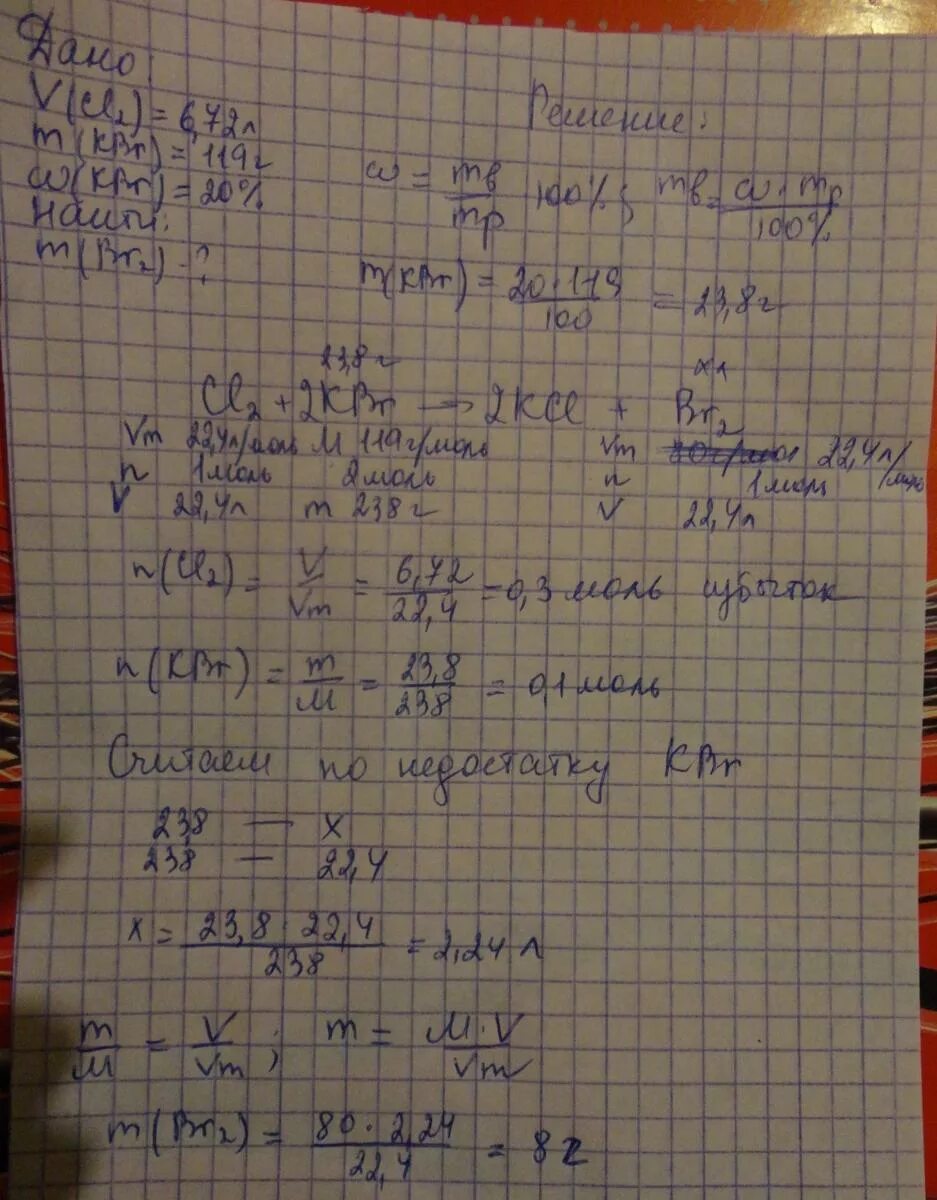 Дано
V(Cl₂) = 6,72л
m(KBr) = 119г
ω(KBr) = 20%
Найти:
m(Br₂) - ?
Решение:
ω = mв/mр 100%; mв = ω · mр/100%
m(KBr) = 20·119/100 = 23,8г
23,8г xл
Cl₂ + 2KBr → 2KCl + Br₂
Vm 22,4л/моль M 119г/моль Vm 22,4л/моль
n 1моль 2моль n 1моль
V 22,4л m 238г V 22,4л
n(Cl₂) = V/Vm = 6,72/22,4 = 0,3моль избыток
n(KBr) = m/M = 23,8/238 = 0,1моль
Считаем по недостатку KBr
23,8 — x
238 — 22,4
x = 23,8·22,4/238 = 2,24л
m/M = V/Vm ; m = M·V/Vm
m(Br₂) = 80·2,24/22,4 = 8г